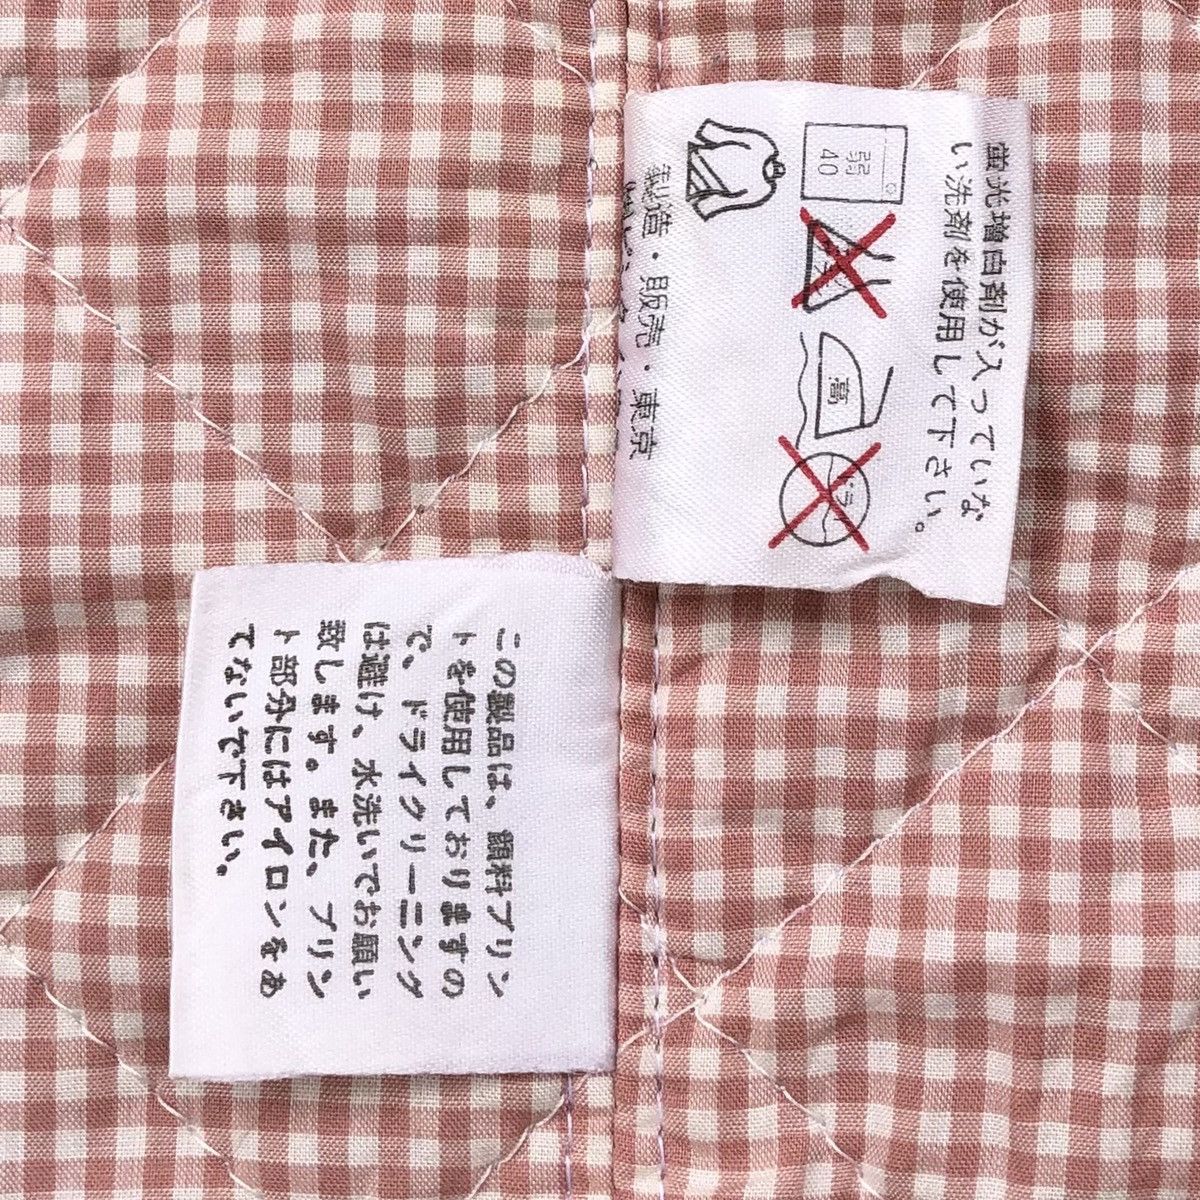 蛍光増白剤が入っていな
い洗剤を使用して下さい。
弱
40
高
ドライ
製造・販売・東京
この製品は、顔料プリン
トを使用しておりますの
で。ドライクリーニング
は避け、水洗いでお願い
致します。また、プリン
ト部分にはアイロンをあ
てないで下さい。